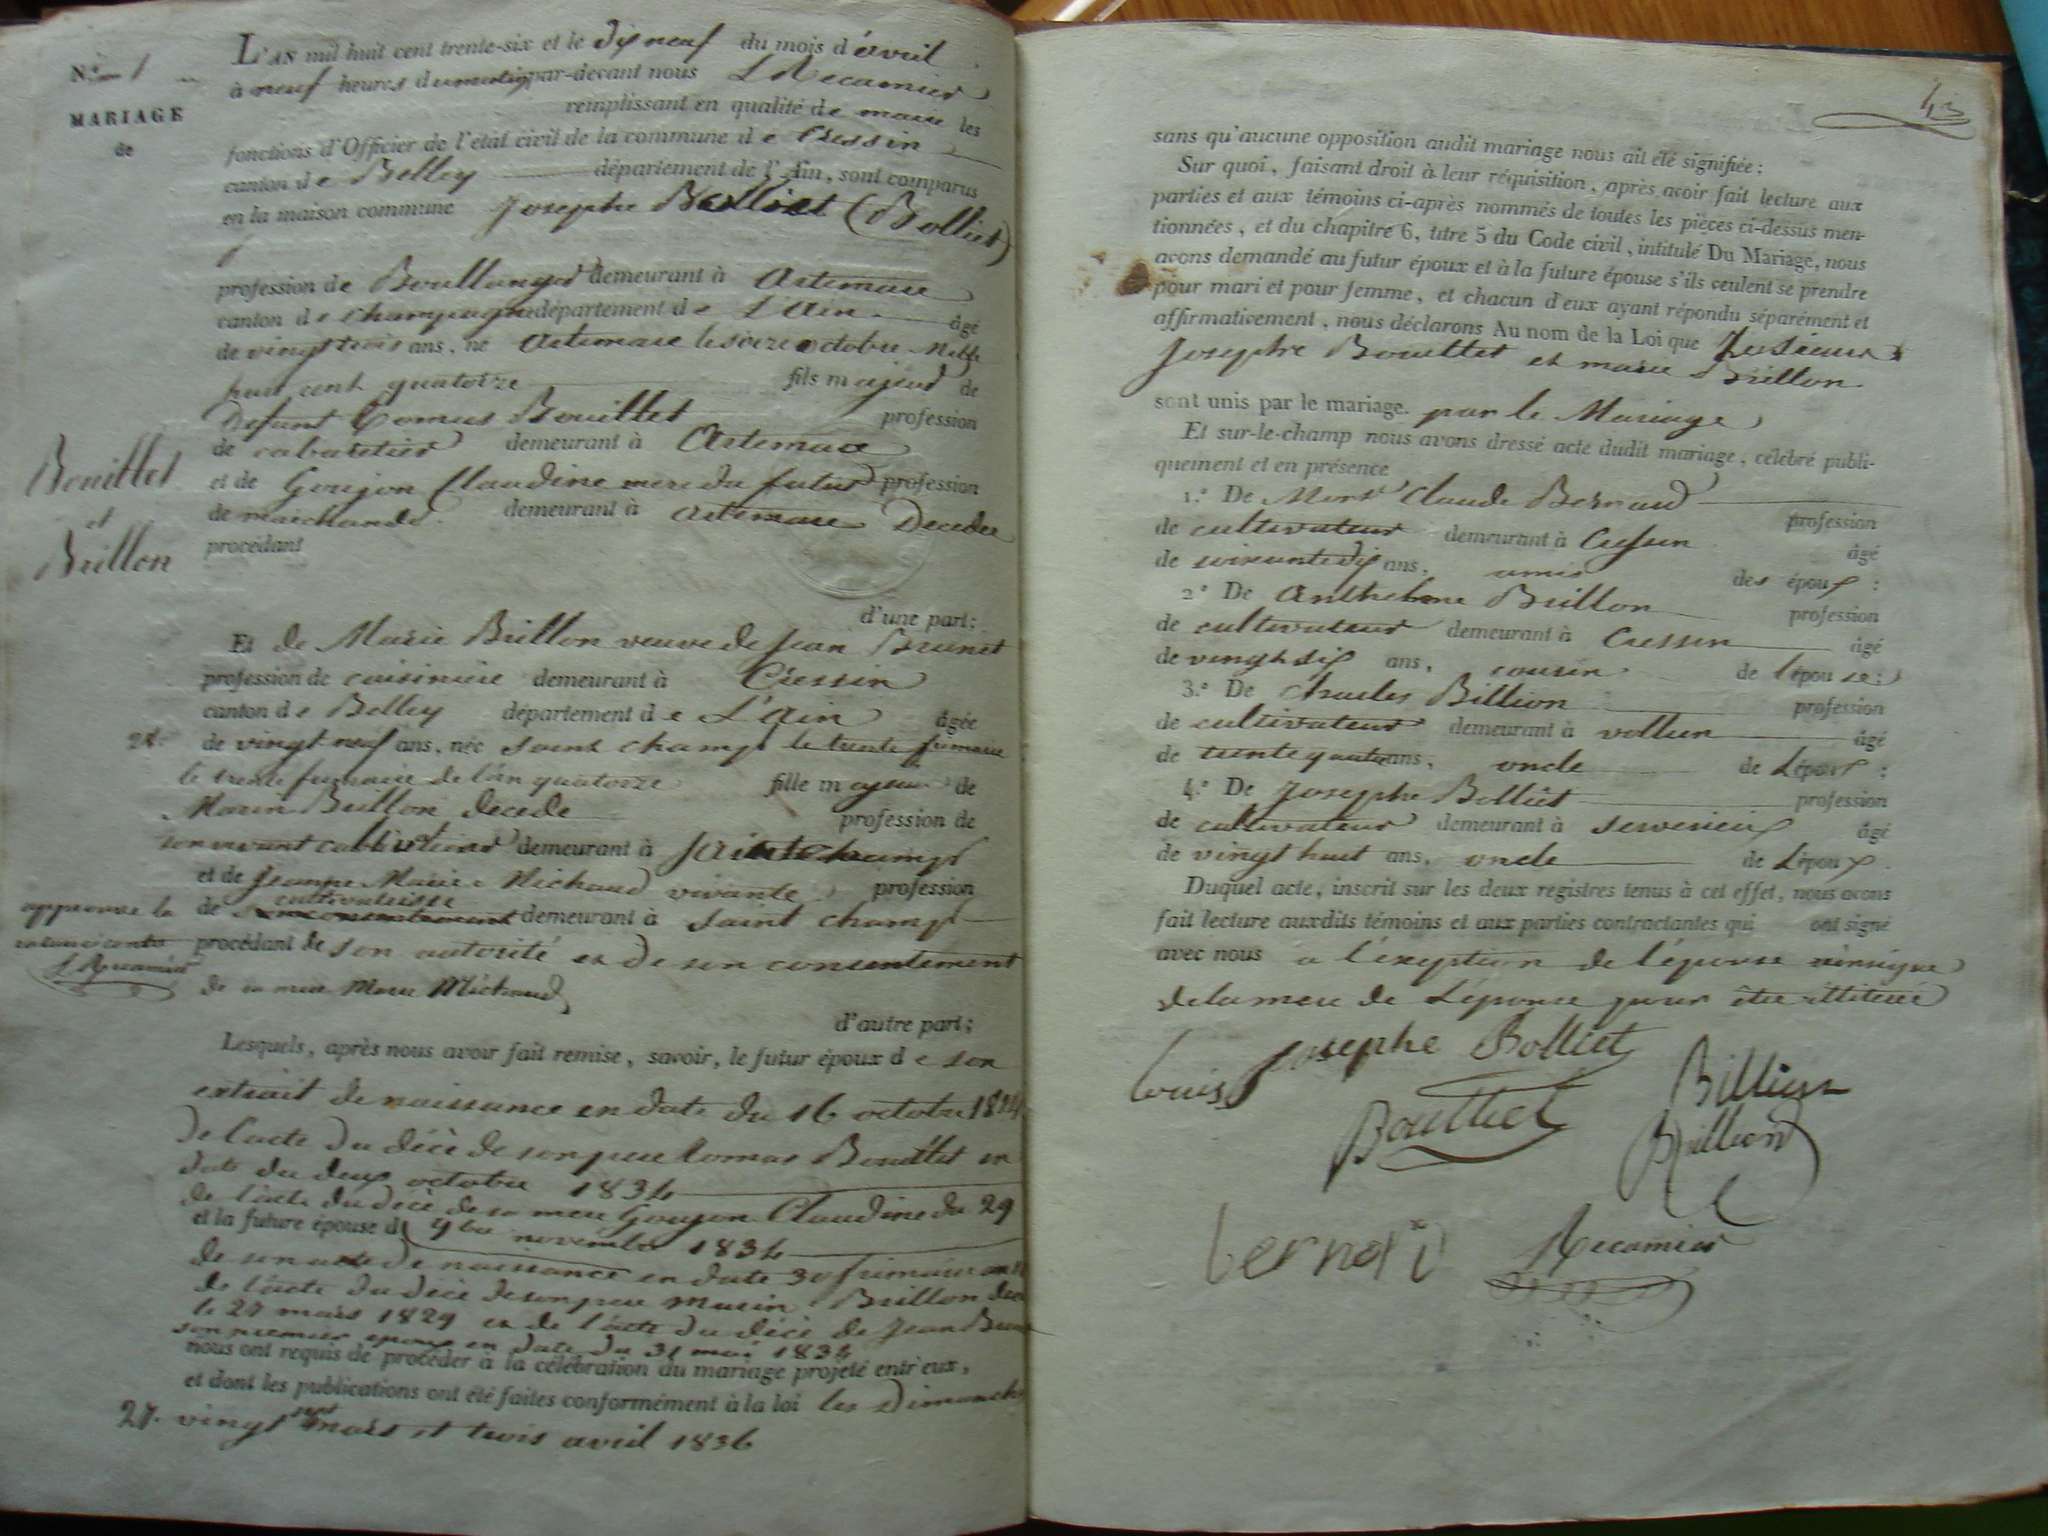 N.º 1
MARIAGE
de
Bouillet
et
Brillon
L'AN mil huit cent trente-six et le dix neuf du mois d'avril
à neuf heures du matin, par-devant nous L Recamier
remplissant en qualité de maire les
fonctions d'Officier de l'état civil de la commune de Cressin
canton de Belley département de l'Ain, sont comparus
en la maison commune Josephe Bolliet (Bolliet)
profession de Boullanger demeurant à Artemare
canton de champagne département de L'Ain âgé
de vingt trois ans, né Artemare le seize octobre Mille
huit cent quatorze fils majeur de
Defunt Tomas Bouillet profession
de cabaretier demeurant à Artemare
et de Goujon Claudine mere du futur profession
de marchande demeurant à Artemare Decedee
procédant
d'une part;
Et de Marie Brillon veuve de Jean Brunet
profession de cuisiniere demeurant à Cressin
canton de Belley département de L'Ain âgée
de vingt neuf ans, née Saint champ le trente frimaire
le trente frimaire de l'an quatorze fille majeur de
Marin Brillon decede profession de
son vivant cultivateur demeurant à Saint champ
et de Jeanne Marie Michaud vivante profession
de cultivatrisse demeurant à Saint champ
approuve la
L Recamier
procédant de son autorité et de son consentement
de sa mere Marie Michaud
d'autre part;
Lesquels, après nous avoir fait remise, savoir, le futur époux de son
extrait de naissance en date du 16 octobre 1814
de l'acte du décè de son pere Tomas Bouillet en
date du deux octobre 1834
de l'acte du décè de sa mere Goujon Claudine du 29
et la future épouse d 9bre novembre 1834
de son acte de naissance en date 30 frimaire an 14
de l'acte du décè de son pere Marin Brillon
le 27 mars 1829 et de l'acte du décè de Jean Brunet
son premier epoux en date du 31 mai 1834
nous ont requis de procéder à la célébration du mariage projeté entr'eux,
et dont les publications ont été faites conformément à la loi les Dimanche
27. vingt sept mars et trois avril 1836
sans qu'aucune opposition audit mariage nous ait été signifiée;
Sur quoi, faisant droit à leur réquisition, après avoir fait lecture aux
parties et aux témoins ci-après nommés de toutes les pièces ci-dessus men-
tionnées, et du chapitre 6, titre 5 du Code civil, intitulé Du Mariage, nous
avons demandé au futur époux et à la future épouse s'ils veulent se prendre
pour mari et pour femme, et chacun d'eux ayant répondu séparément et
affirmativement, nous déclarons Au nom de la Loi que
Josephe Bouillet et marie Brillon
sont unis par le mariage. par le Mariage
Et sur-le-champ nous avons dressé acte dudit mariage, célébré publi-
quement et en présence
1.º De Claude Bernard profession
de cultivateur demeurant à Cressin âgé
de soixante dix ans, amis des époux :
2.º De Anthelme Brillon profession
de cultivateur demeurant à Cressin âgé
de vingt six ans, cousin de l'épouse;
3.º De Charles Billion profession
de cultivateur demeurant à vollien âgé
de trente quatre ans, oncle de L'époux ;
4.º De Josephe Bolliet profession
de cultivateur demeurant à âgé
de vingt huit ans, oncle de L'époux.
Duquel acte, inscrit sur les deux registres tenus à cet effet, nous avons
fait lecture auxdits témoins et aux parties contractantes qui ont signé
avec nous a l'exeption de l'épouse ainsi que
de la mere de L'épouse pour être
Louis Josephe Bolliet
Billion
Bouilliet
Brillion
bernard
Recamier